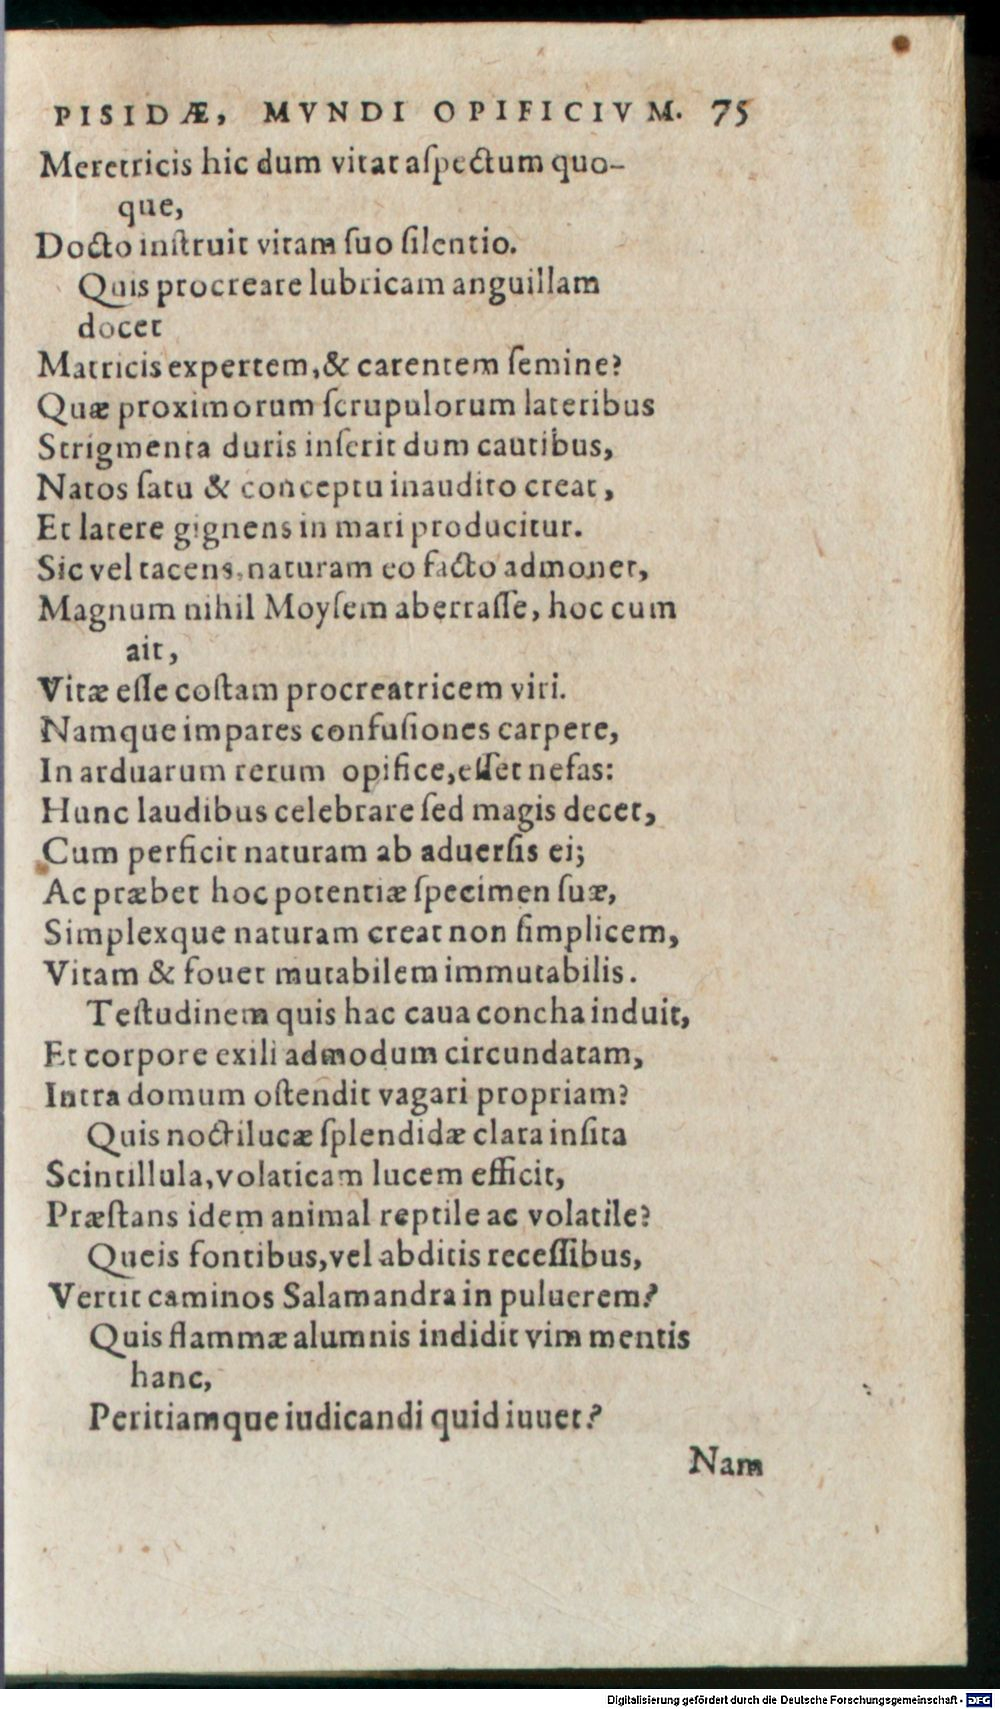 PISIDÆ, MVNDI OPIFICIVM. 75
Meretricis hic dum vitat aſpectum quo-
que,
Docto inſtruit vitam ſuo ſilentio.
Quis procreare lubricam anguillam
docet
Matricis expertem, & carentem ſemine?
Quæ proximorum ſcrupulorum lateribus
Strigmenta duris inſerit dum cautibus,
Natos ſatu & conceptu inaudito creat,
Et latere gignens in mari producitur.
Sic vel tacens, naturam eo facto admonet,
Magnum nihil Moyſem aberraſſe, hoc cum
ait,
Vitæ eſſe coſtam procreatricem viri.
Namque impares confuſiones carpere,
In arduarum rerum opifice, eſſet nefas:
Hunc laudibus celebrare ſed magis decet,
Cum perficit naturam ab aduerſis ei;
Ac præbet hoc potentiæ ſpecimen ſuæ,
Simplexque naturam creat non ſimplicem,
Vitam & fouet mutabilem immutabilis.
Teſtudinem quis hac caua concha induit,
Et corpore exili admodum circundatam,
Intra domum oſtendit vagari propriam?
Quis noctilucæ ſplendidæ clara inſita
Scintillula, volaticam lucem efficit,
Præſtans idem animal reptile ac volatile?
Queis fontibus, vel abditis receſſibus,
Vertit caminos Salamandra in puluerem?
Quis flammæ alumnis indidit vim mentis
hanc,
Peritiamque iudicandi quid iuuet?
Nam
Digitalisierung gefördert durch die Deutsche Forschungsgemeinschaft - DFG